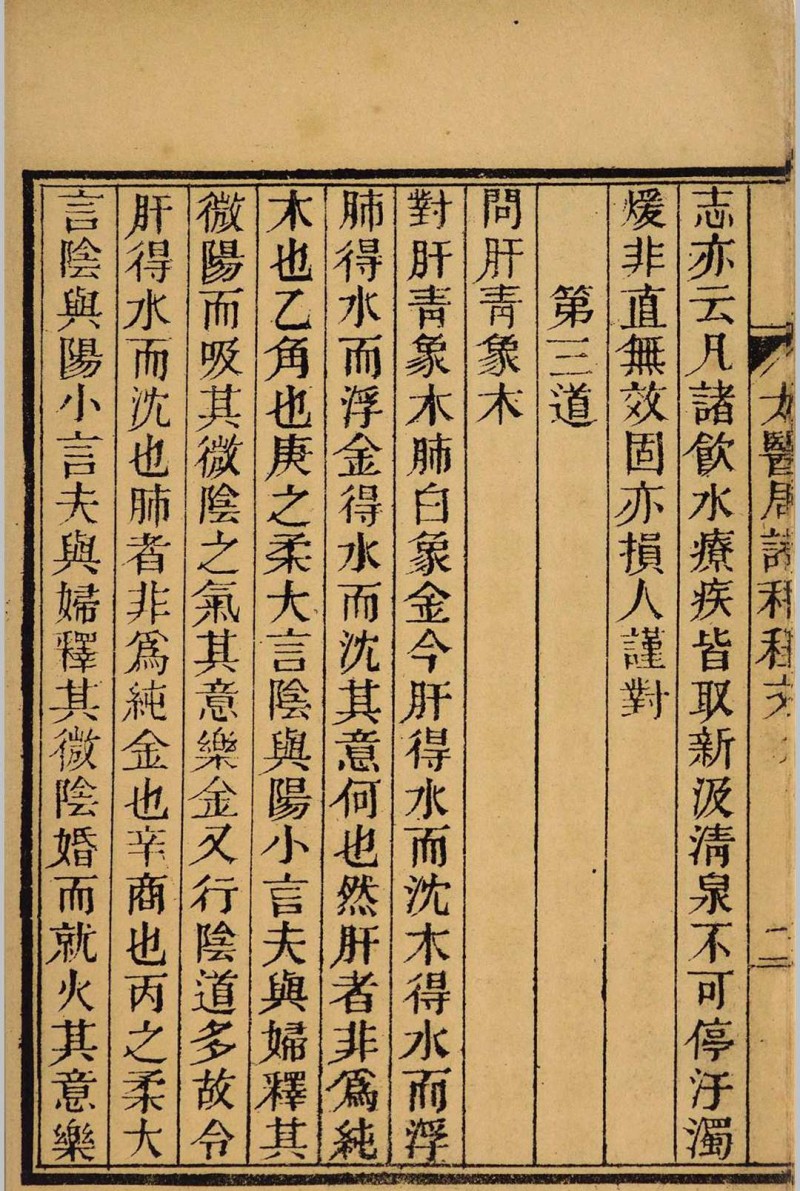 太醫局諸科程文 二
志亦云凡諸飲水療疾皆取新汲清泉不可停汙濁
煖非直無效固亦損人謹對
第三道
問肝青象木
對肝青象木肺白象金今肝得水而沈木得水而浮
肺得水而浮金得水而沈其意何也然肝者非爲純
木也乙角也庚之柔大言陰與陽小言夫與婦釋其
微陽而吸其微陰之氣其意樂金又行陰道多故令
肝得水而沈也肺者非爲純金也辛商也丙之柔大
言陰與陽小言夫與婦釋其微陰婚而就火其意樂